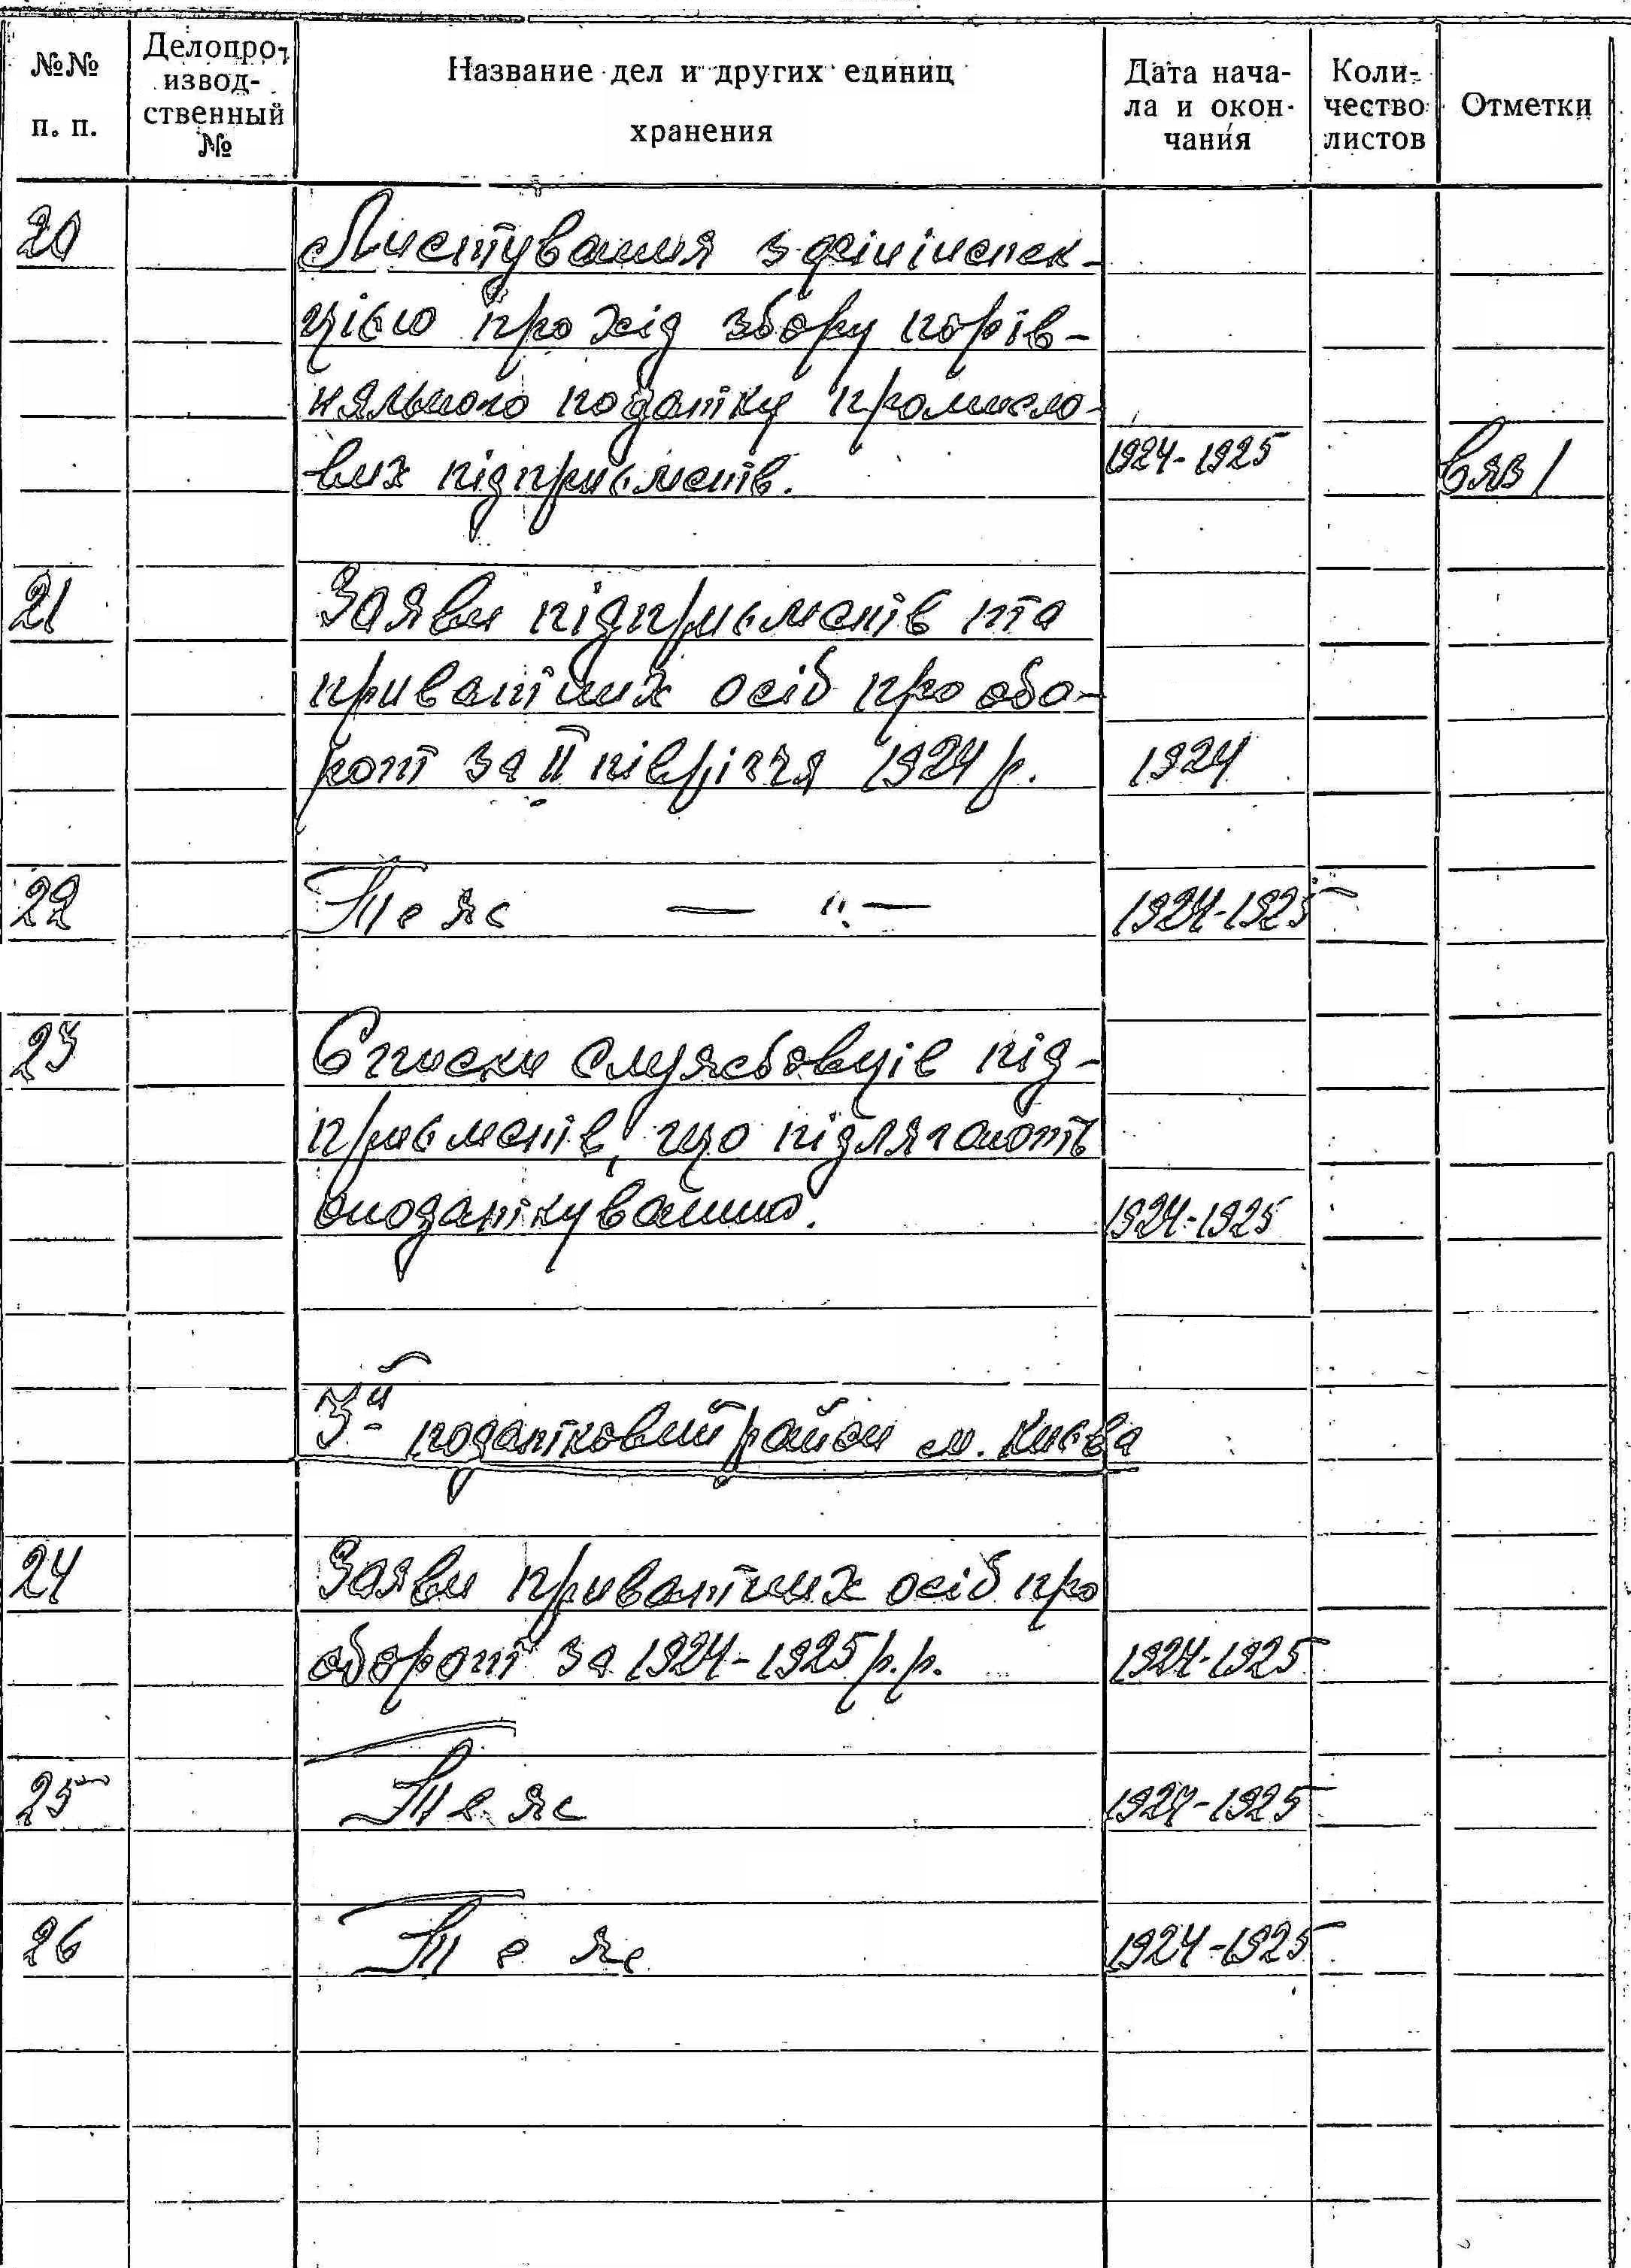 №№ п. п.
Делопроизвод-ственный №
Название дел и других единиц хранения
Дата начала и окончания
Количество листов
Отметки
20
Листування з фінінспек-
цією про хід збору порів-
няльного податку промисло-
вих підприємств. 1924-1925 Вяз 1
21
Заяви підприємств та
приватних осіб про обо-
рот за II півріччя 1924 р. 1924
22 Теж — " — 1924-1925
23
Списки службовців під-
приємств, що підлягають
оподаткуванню. 1924-1925
3й податковий район м. Києва
24
Заяви приватних осіб про
оборот за 1924-1925 р.р. 1924-1925
25 Теж 1924-1925
26 Теж 1924-1925